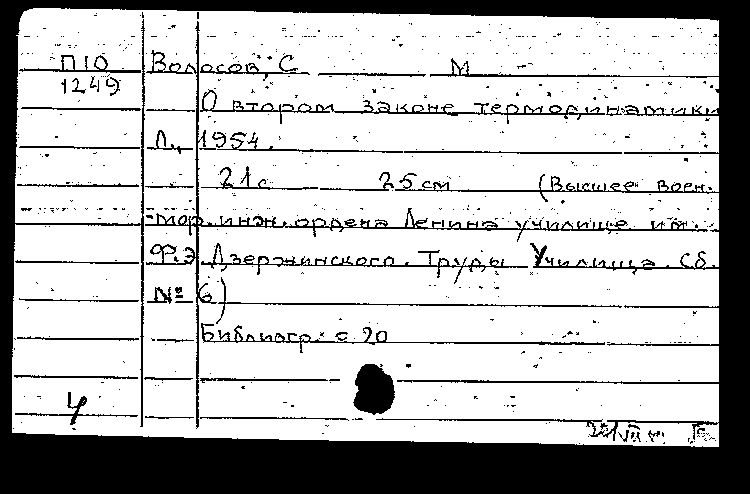 П10 Волосов, С М
1249
О втором законе термодинамики
Л., 1954.
21с 25 см (Высшее воен.
-мор. инж. ордена Ленина училище им.
Ф.Э. Дзержинского. Труды Училища. Сб.
№ 6)
Библиогр. с 20
4